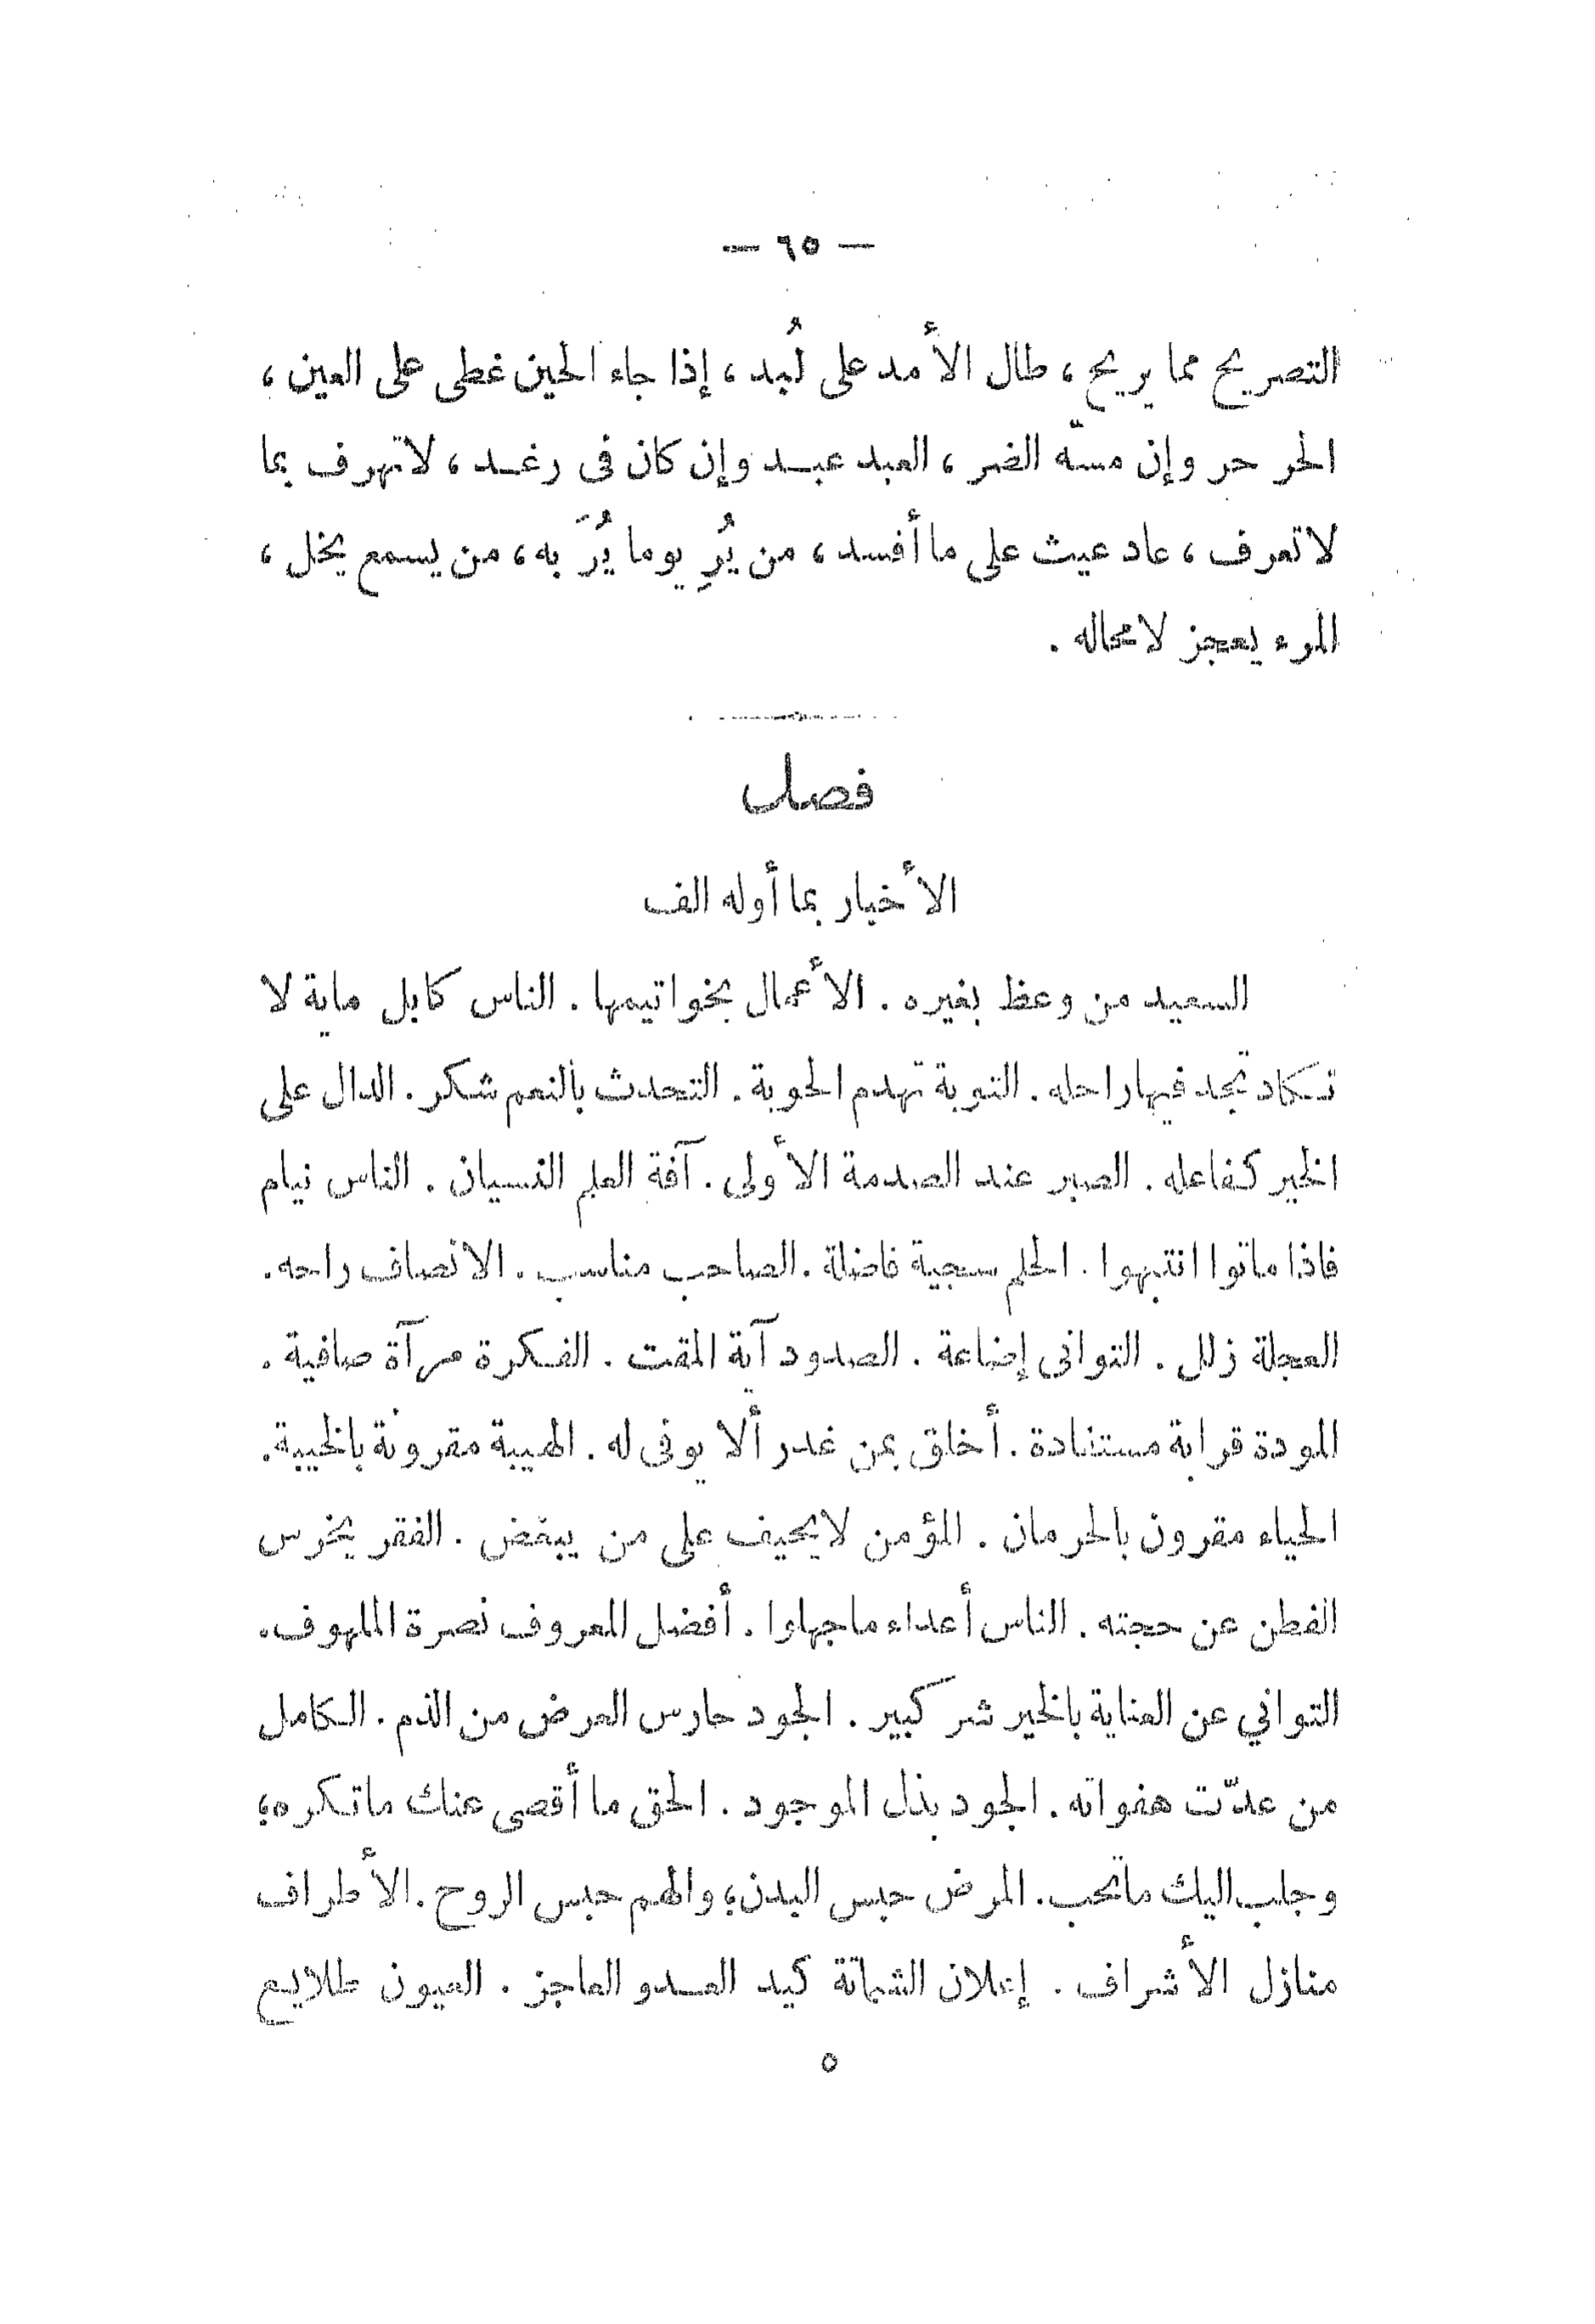 — ٦٥ —
التصريح مما يريح ، طال الأمد على لُبد ، إذا جاء الحين غطى على العين ،
الحر حر وإن مسّه الضر ، العبد عبد وإن كان فى رغد ، لا تهرف بما
لا تعرف ، عاد عيث على ما أفسد ، من يُرِ يوما يُرَ به ، من يسمع يخل ،
المرء يعجز لا محاله .
فصل
الأخبار بما أوله الف
السعيد من وعظ بغيره . الأعمال بخواتيمها . الناس كابل ماية لا
تكاد تجد فيها راحله . التوبة تهدم الحوبة . التحدث بالنعم شكر . الدال على
الخير كفاعله . الصبر عند الصدمة الأولى . آفة العلم النسيان . الناس نيام
فاذا ماتوا انتبهوا . الحلم سجية فاضلة . الصاحب مناسب . الانصاف راحه .
العجلة زلل . التوانى إضاعة . الصدود آية المقت . الفكرة مرآة صافية .
المودة قرابة مستفادة . أخلق بمن غدر ألا يوفى له . الهيبة مقرونة بالخيبة .
الحياء مقرون بالحرمان . المؤمن لا يحيف على من يبغض . الفقر يخرس
الفطن عن حجته . الناس أعداء ما جهلوا . أفضل المعروف نصرة الملهوف .
التواني عن العناية بالخير شر كبير . الجود حارس العرض من الذم . الكامل
من عدّت هفواته . الجود بذل الموجود . الحق ما أقصى عنك ما تكره ؛
وجلب اليك ما تحب . المرض حبس البدن ؛ والهم حبس الروح . الأطراف
منازل الأشراف . إعلان الشماتة كيد العدو العاجز . العيون طلايع
٥